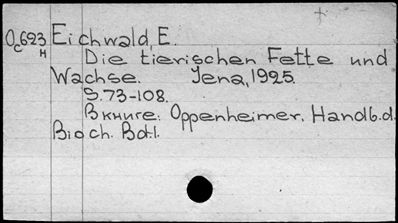 Oc623 Eichwald, E.
H
Die tierischen Fette und
Wachse. Jena, 1925.
S. 73-108.
В книге: Oppenheimer. Handb. d.
Bioch. Bd. 1.